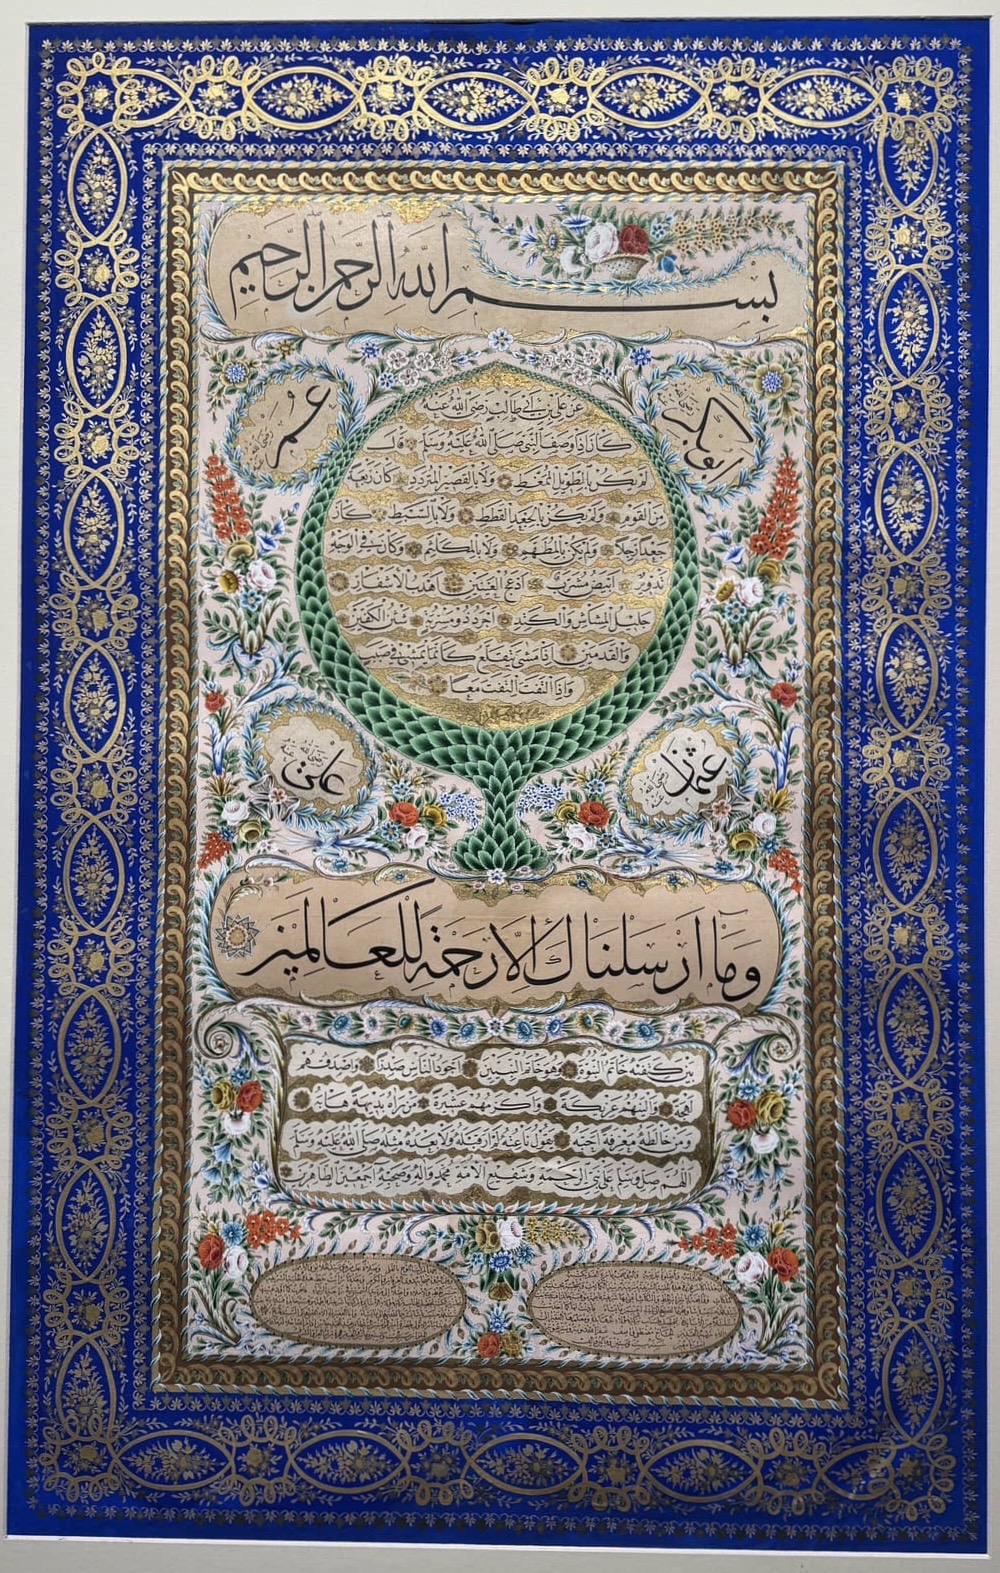 بسم الله الرحمن الرحيم
ابوبكر رضي الله عنه
عمر رضي الله عنه
عن علي بن ابي طالب رضي الله عنه
كان اذا وصف النبي صلى الله عليه وسلم قال
لم يكن بالطويل الممغط ولا بالقصير المتردد وكان ربعة
من القوم ولم يكن بالجعد القطط ولا بالسبط كان
جعدا رجلا ولم يكن بالمطهم ولا بالمكلثم وكان في الوجه
تدوير ابيض مشرب ادعج العينين اهدب الاشفار
جليل المشاش والكتد اجرد ذو مسربة شثن الكفين
والقدمين اذا مشى يتقلع كانما يمشي في صبب
واذا التفت التفت معا
عثمان رضي الله عنه
علي رضي الله عنه
وما ارسلناك الا رحمة للعالمين
بين كتفيه خاتم النبوة وهو خاتم النبيين اجود الناس صدرا واصدقهم
لهجة والينهم عريكة واكرمهم عشيرة من راه بديهة هابه
ومن خالطه معرفة احبه يقول ناعته لم ار قبله ولا بعده مثله صلى الله عليه وسلم
اللهم صل وسلم على نبي الرحمة وشفيع الامة محمد واله وصحبه اجمعين الطاهرين